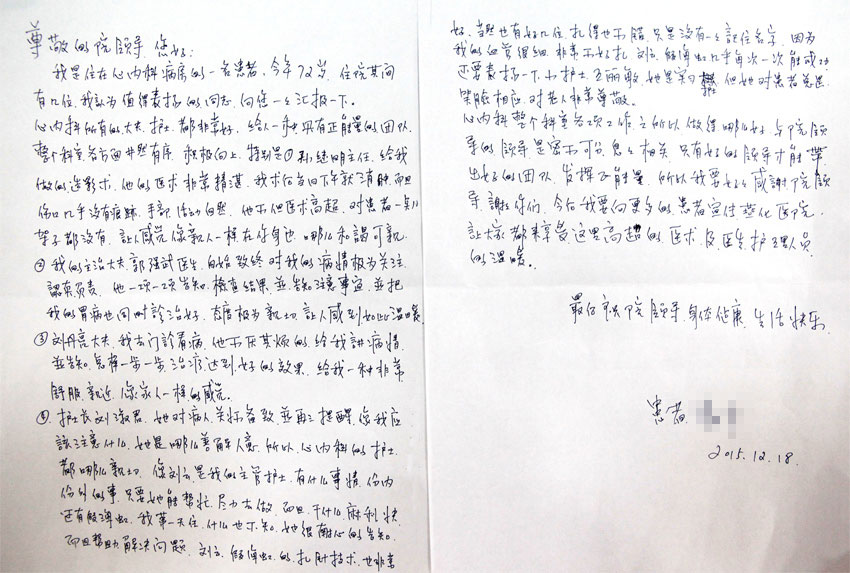 尊敬的院领导 您好：
我是住在心内科病房的一名患者，今年72岁，住院其间
有几位，我认为值得表扬的同志，向您一一汇报一下。
心内科所有的大夫、护士都非常好，给人一种具有正能量的团队
整个科室各方面井然有序，积极向上，特别是①荆继明主任，给我
做的造影术，他的医术非常精湛，我术后当日下午就消肿，而且
伤口几乎没有痕跡，手部活动自然，他不但医术高超，对患者一点儿
架子都没有，让人感觉像亲人一样在你身边，哪么和謁可親
②我的主治大夫，郭强武医生，自始致终对我的病情极为关注
認真负责，他一项一项告知，檢查结果並告知注意事宜，並把
我的胃病也同时診治好，态度极为親切，讓人感到如此温暖。
③刘丹亮大夫，我去门診看病，他不厌其烦的，给我讲病情
並告知怎样一步一步治疗达到好的效果，给我一种非常
舒服，親近，像家人一样的感觉。
④护士长刘淑君，她对病人关怀备致，並再三提醒您我应
該注意什么，她是哪么善解人意，所以，心内科的护士
都哪么親切，像刘云是我的主管护士，有什么事情，份内
份外的事，只要她能帮忙，尽力去做，而且干什么麻利快
还有段海虹，我第一天住，什么也不知，她很耐心的告知，
而且帮助解决问题，刘云、段海虹的扎针技术也非常
好，当然也有好几位，扎得也不错，只是没有一一記住名字，因为
我的血管很细，非常不好扎，刘云，段海虹几乎每次一次就成功
还要表扬一下小护士，王丽敏，她是实习 但她对患者总是
笑臉相应，对老人非常尊敬。
心内科整个科室各项工作，之所以做得哪么好，与院领
导的领导是密不可分，息息相关，只有好的领导才能带
出好的团队，发挥正能量，所以我要好好感謝院领
导，謝謝你们，今后我要向更多的患者宣传
让大家都来享受这里高超的医术，及医生护理人员
的温暖。
最后祝院领导，身体健康，生活快乐
患者
2015.12.18.